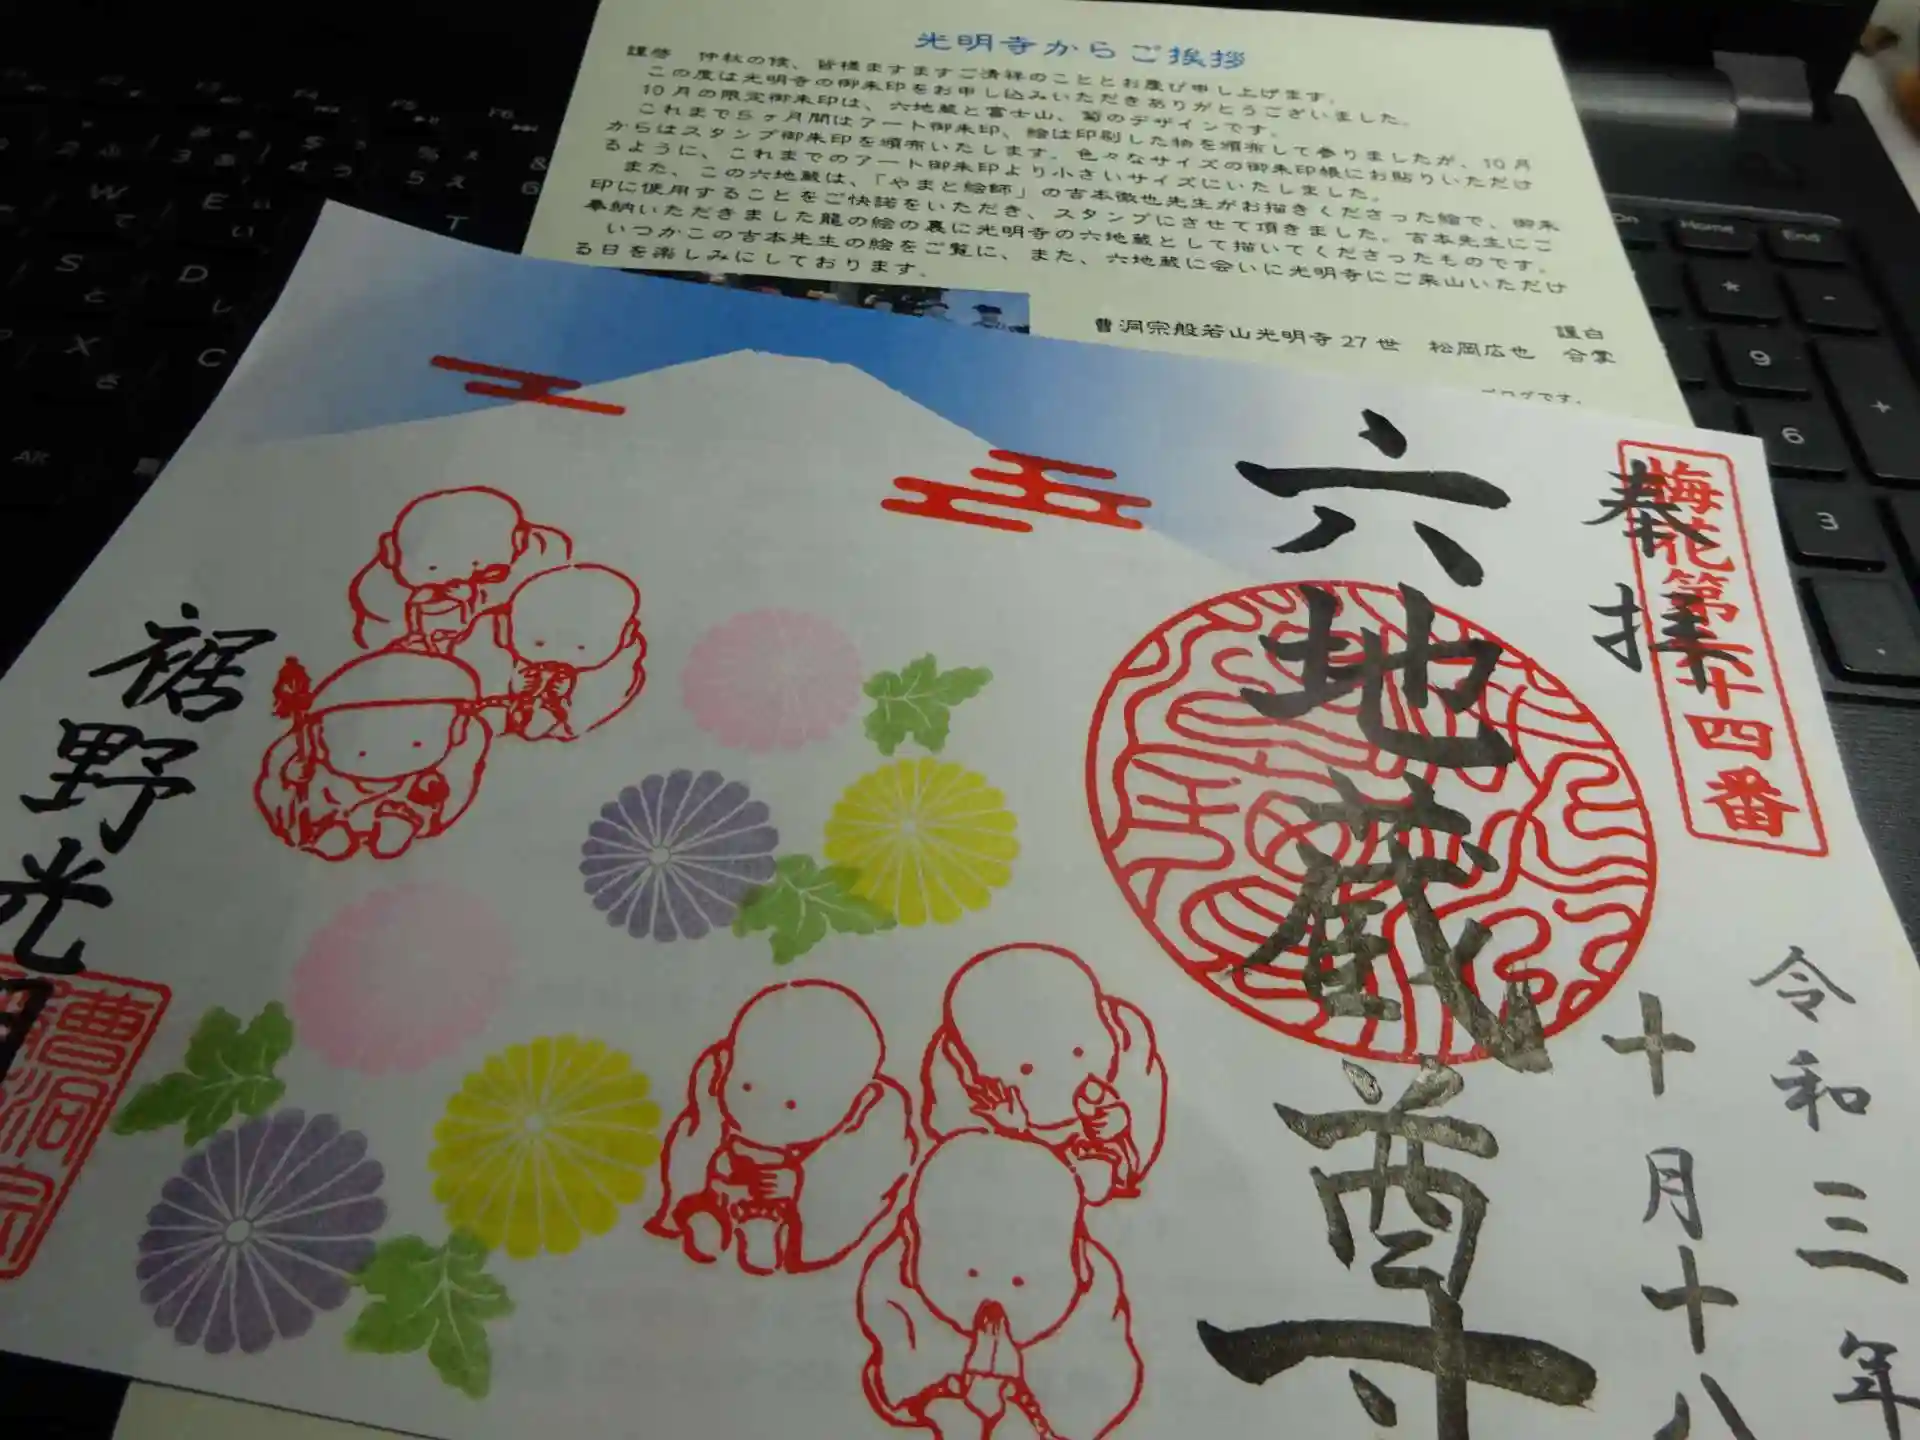 光明寺からご挨拶
謹啓 仲秋の候、皆様ますますご清祥のこととお慶び申し上げます。
この度は光明寺の御朱印をお申し込みいただきありがとうございました。
10月の限定御朱印は、六地蔵と富士山、菊のデザインです。
これまで5ヶ月間はアート御朱印、絵は印刷した物を頒布して参りましたが、10月
からはスタンプ御朱印を頒布いたします。色々なサイズの御朱印帳にお貼りいただけ
るように、これまでのアート御朱印より小さいサイズにいたしました。
また、この六地蔵は、「やまと絵師」の吉本徹也先生がお描きくださった絵で、御朱
印に使用することをご快諾をいただき、スタンプにさせて頂きました。吉本先生にご
奉納いただきました龍の絵の裏に光明寺の六地蔵として描いてくださったものです。
いつかこの吉本先生の絵をご覧に、また、六地蔵に会いに光明寺にご来山いただけ
る日を楽しみにしております。
謹白
曹洞宗般若山光明寺27世 松岡広也 合掌
ブログです。
奉拝
梅花第六十四番
令和三年
十月十八
六地蔵尊
裾野光明
曹洞宗